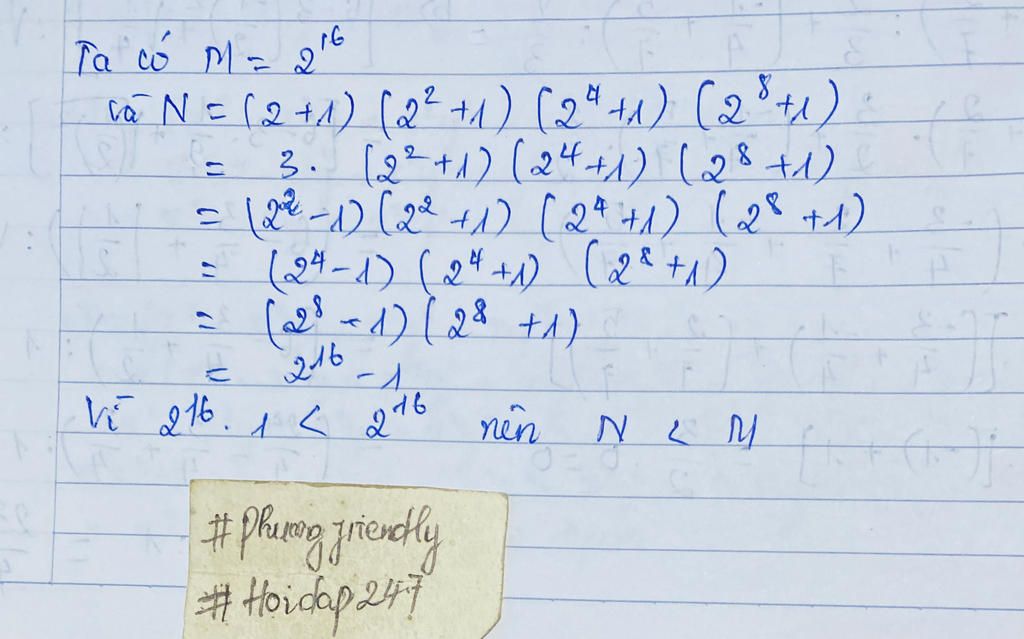 Ta có M = 2^16
và N = (2+1) (2^2+1) (2^4+1) (2^8+1)
= 3. (2^2+1) (2^4+1) (2^8+1)
= (2^2-1) (2^2+1) (2^4+1) (2^8+1)
= (2^4-1) (2^4+1) (2^8+1)
= (2^8-1) (2^8+1)
= 2^16-1
Vì 2^16. 1 < 2^16 nên N < M
#Phuongfriendly
#Hoidap247